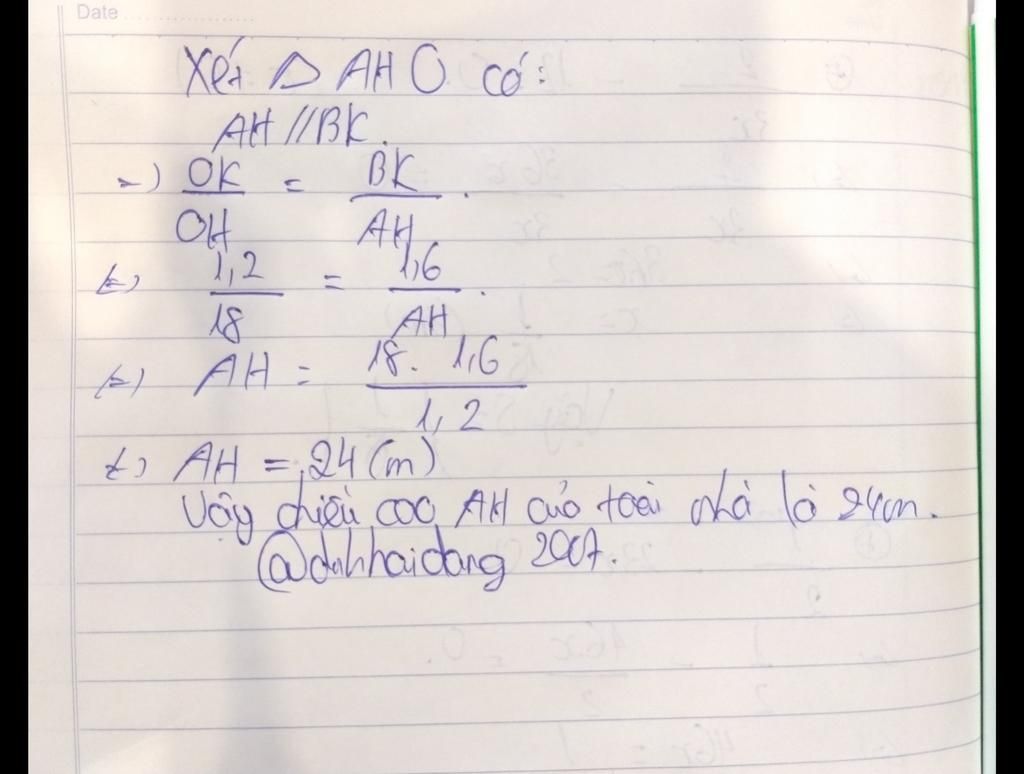 Date
Xét △ AHO có:
AH // BK.
=) OK/OH = BK/AH.
(=) 1,2/18 = 1,6/AH.
(=) AH = 18. 1,6/1,2
(=) AH = 24 (m)
Vậy chiều cao AH của toà nhà là 24m.
@dinhhaidang 2007.